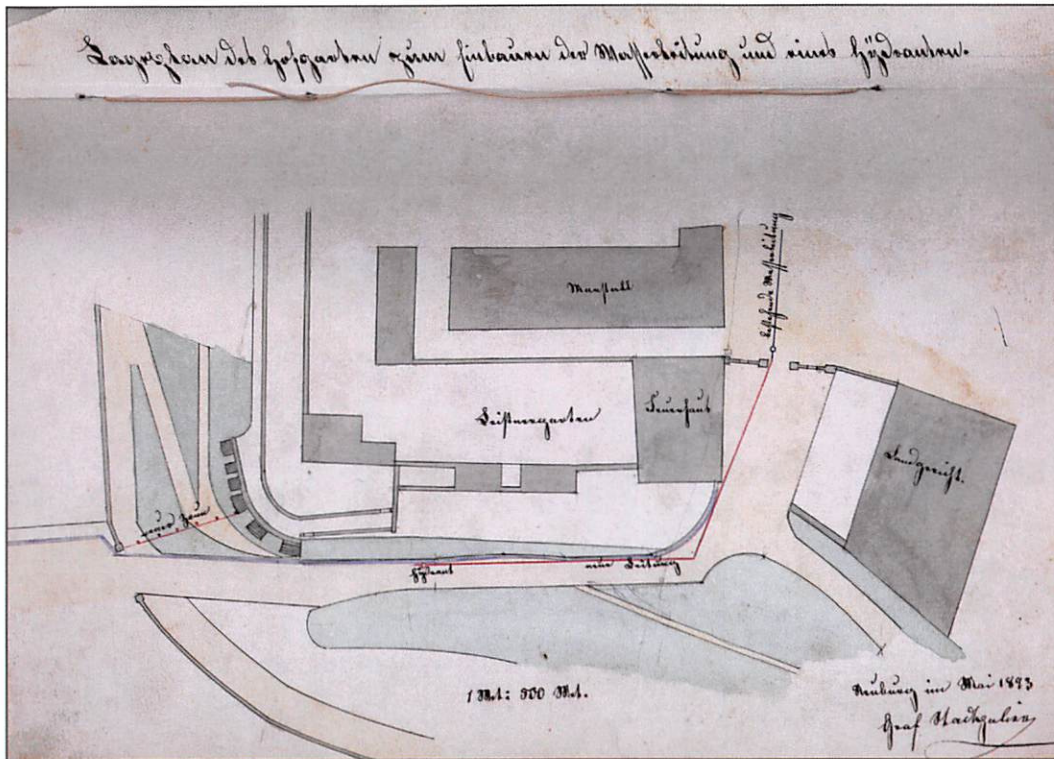 Lageplan des Hofgarten zum Einbauen der Wasserleitung und eines Hydranten.
bestehende Wasserleitung
Marstall
Feuerhaus
Landgericht.
neuer Zaun
Hydrant
neue Leitung
1 Met: 500 Met.
Neuburg im Mai 1893
Graf Stadtpalier